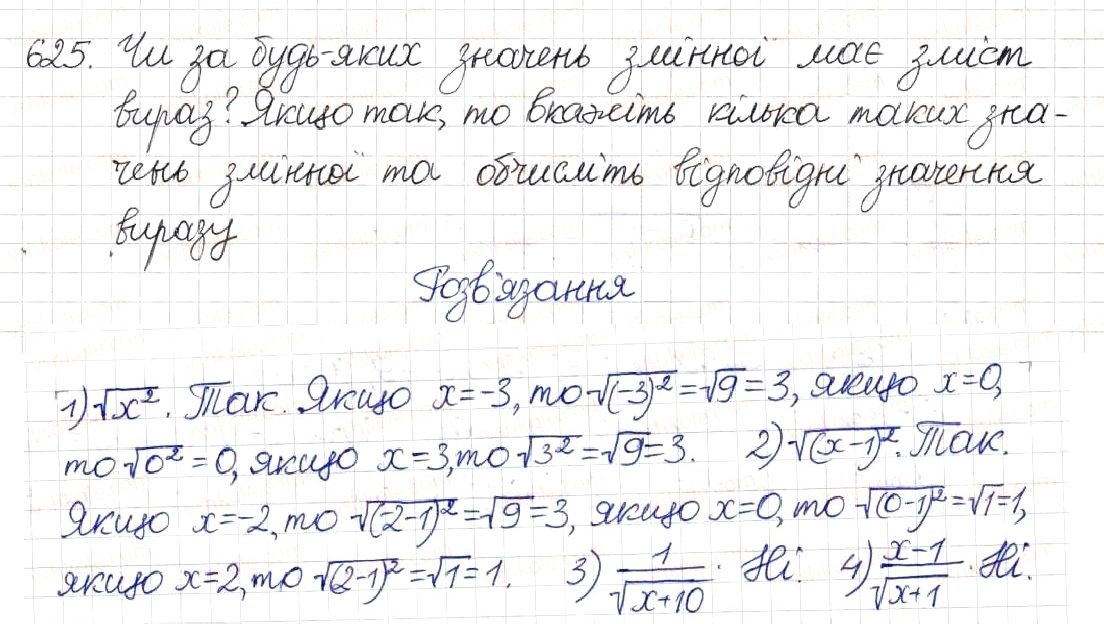 625. Чи за будь-яких значень змінної має зміст
вираз? Якщо так, то вкажіть кілька таких зна-
чень змінної та обчисліть відповідні значення
виразу
Розв'язання
1) √(x²). Так. Якщо x=-3, то √((-3)²)=√9=3, якщо x=0,
то √(0²)=0, якщо x=3, то √(3²)=√9=3. 2) √((x-1)²). Так.
Якщо x=-2, то √((-2-1)²)=√9=3, якщо x=0, то √((0-1)²)=√1=1,
якщо x=2, то √((2-1)²)=√1=1. 3) 1/√(x+10). Ні. 4) (x-1)/√(x+1). Ні.